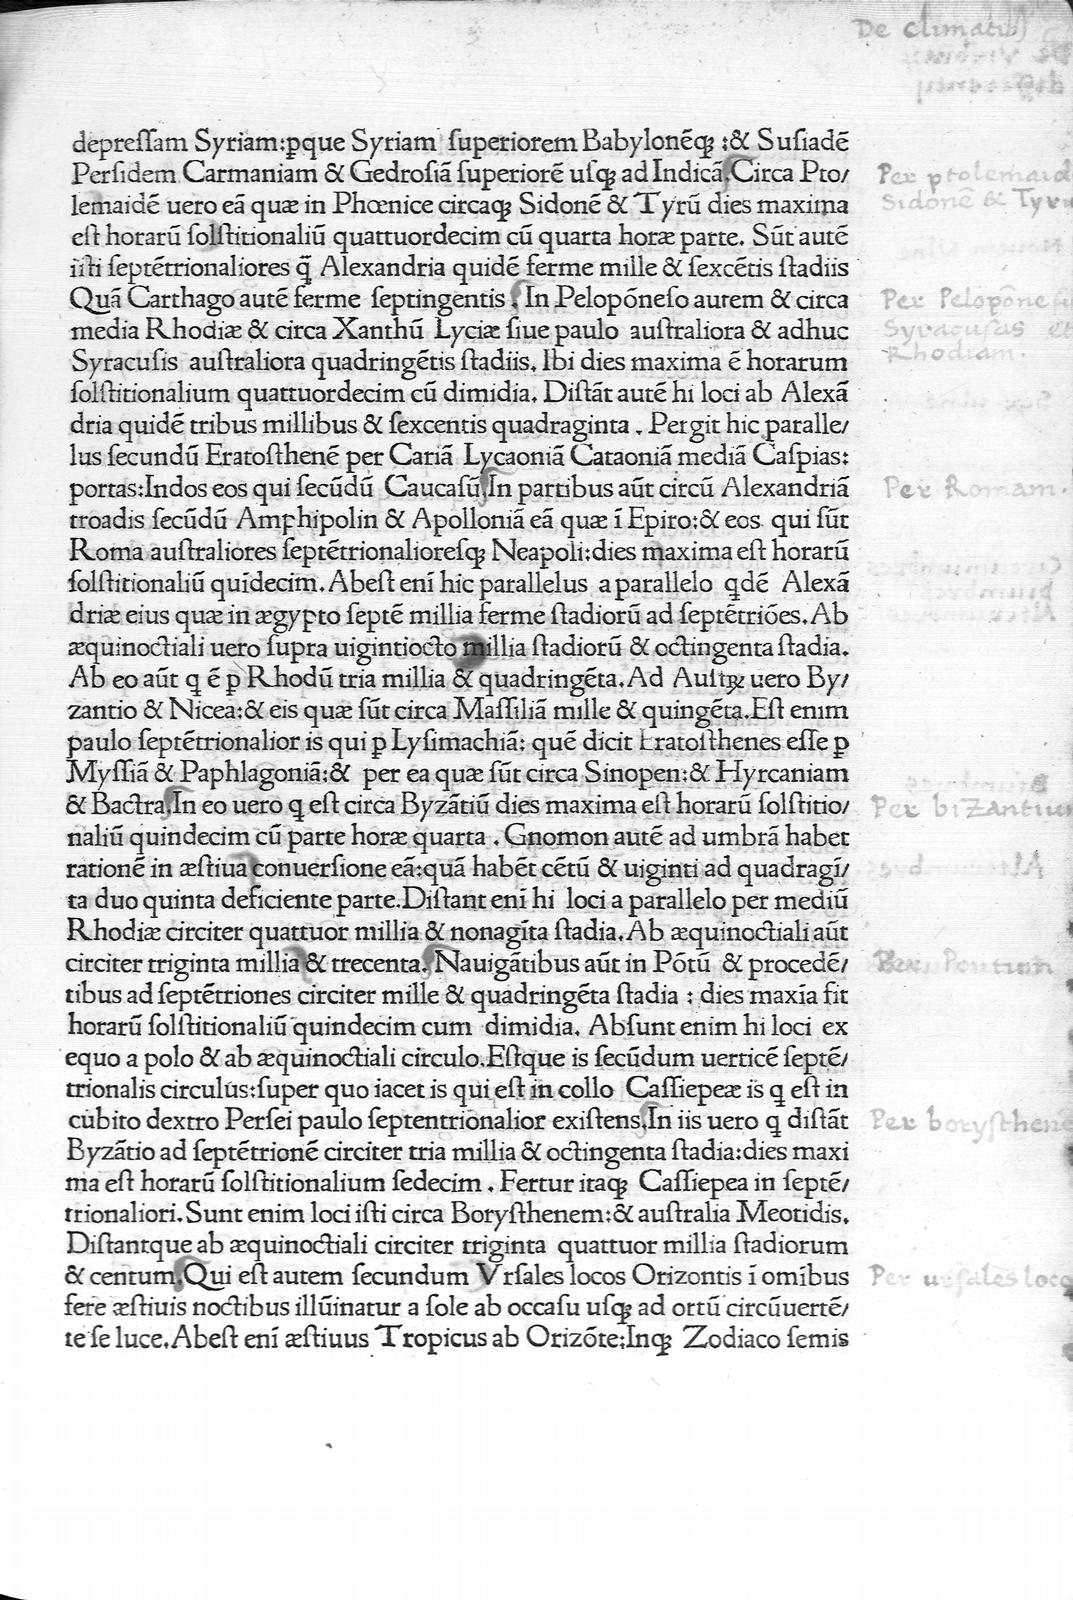 De climatib)
depreſſam Syriam:ꝑque Syriam ſuperiorem Babylonēqꝫ :& Suſiadē
Perſidem Carmaniam & Gedroſiā ſuperiorē uſqꝫ ad Indicā. Circa Pto/
lemaidē uero eā quæ in Phœnice circaqꝫ Sidonē & Tyrū dies maxima
eſt horarū ſolſtitionaliū quattuordecim cū quarta horæ parte. Sūt autē
iſti ſeptētrionaliores q̄ Alexandria quidē ferme mille & ſexcētis ſtadiis
Quā Carthago autē ferme ſeptingentis . In Pelopōneſo autem & circa
media Rhodiæ & circa Xanthū Lyciæ ſiue paulo auſtraliora & adhuc
Syracuſis auſtraliora quadringētis ſtadiis. Ibi dies maxima ē horarum
ſolſtitionalium quattuordecim cū dimidia. Diſtāt autē hi loci ab Alexā
dria quidē tribus millibus & ſexcentis quadraginta . Pergit hic paralle/
lus ſecundū Eratoſthenē per Cariā Lycaoniā Cataoniā mediā Caſpias:
portas:Indos eos qui ſecūdū Caucaſū. In partibus aūt circū Alexandriā
troadis ſecūdū Amphipolin & Apolloniā eā quæ ī Epiro:& eos qui ſūt
Roma auſtraliores ſeptētrionalioreſqꝫ Neapoli:dies maxima eſt horarū
ſolſtitionaliū quīdecim. Abeſt enī hic parallelus a parallelo qdē Alexā
driæ eius quæ in ægypto ſeptē millia ferme ſtadiorū ad ſeptētriōes. Ab
æquinoctiali uero ſupra uigintiocto millia ſtadiorū & octingenta ſtadia.
Ab eo aūt q ē ꝑ Rhodū tria millia & quadringēta. Ad Auſtꝝ uero By/
zantio & Nicea:& eis quæ ſūt circa Maſſiliā mille & quingēta. Eſt enim
paulo ſeptētrionalior is qui ꝑ Lyſimachiā: quē dicit Eratoſthenes eſſe ꝑ
Myſſiā & Paphlagoniā:& per ea quæ ſūt circa Sinopen:& Hyrcaniam
& Bactra. In eo uero q eſt circa Byzātiū dies maxima eſt horarū ſolſtitio/
naliū quindecim cū parte horæ quarta . Gnomon autē ad umbrā habet
rationē in æſtiua conuerſione eā:quā habēt cētū & uiginti ad quadragī/
ta duo quinta deficiente parte. Diſtant enī hi loci a parallelo per mediū
Rhodiæ circiter quattuor millia & nonagīta ſtadia. Ab æquinoctiali aūt
circiter triginta millia & trecenta. Nauigātibus aūt in Pōtū & procedē/
tibus ad ſeptētriones circiter mille & quadringēta ſtadia : dies maxīa fit
horarū ſolſtitionaliū quindecim cum dimidia. Abſunt enim hi loci ex
equo a polo & ab æquinoctiali circulo. Eſtque is ſecūdum uerticē ſeptē/
trionalis circulus:ſuper quo iacet is qui eſt in collo Caſſiepeæ is q eſt in
cubito dextro Perſei paulo ſeptentrionalior exiſtens. In iis uero q diſtāt
Byzātio ad ſeptētrionē circiter tria millia & octingenta ſtadia:dies maxi
ma eſt horarū ſolſtitionalium ſedecim . Fertur itaqꝫ Caſſiepea in ſeptē/
trionaliori. Sunt enim loci iſti circa Boryſthenem:& auſtralia Meotidis.
Diſtantque ab æquinoctiali circiter triginta quattuor millia ſtadiorum
& centum. Qui eſt autem ſecundum Vrſales locos Orizontis ī omībus
fere æſtiuis noctibus illūinatur a ſole ab occaſu uſqꝫ ad ortū circūuertē/
te ſe luce. Abeſt enī æſtiuus Tropicus ab Orizōte:Inqꝫ Zodiaco ſemis
Per ptolemaid
Sidonē & Tyru
Per Pelopōneſū
Syracuſas et
Rhodiam.
Per Romam.
Per bizantium
Per Pontum
Per boryſthenē
Per urſales loco